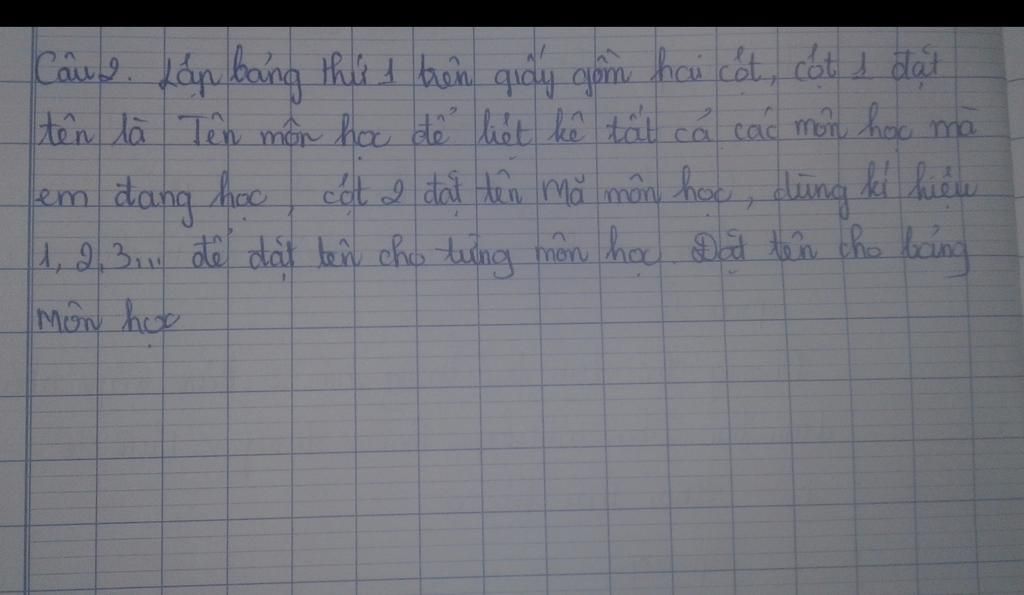 Câu 2. Lập bảng thứ 1 trên giấy gồm hai cột, cột 1 đặt
tên là Tên môn học để liệt kê tất cả các môn học mà
em đang học, cột 2 đặt tên Mã môn học, dùng kí hiệu
1, 2, 3... để đặt tên cho từng môn học. Đặt tên cho bảng
Môn học